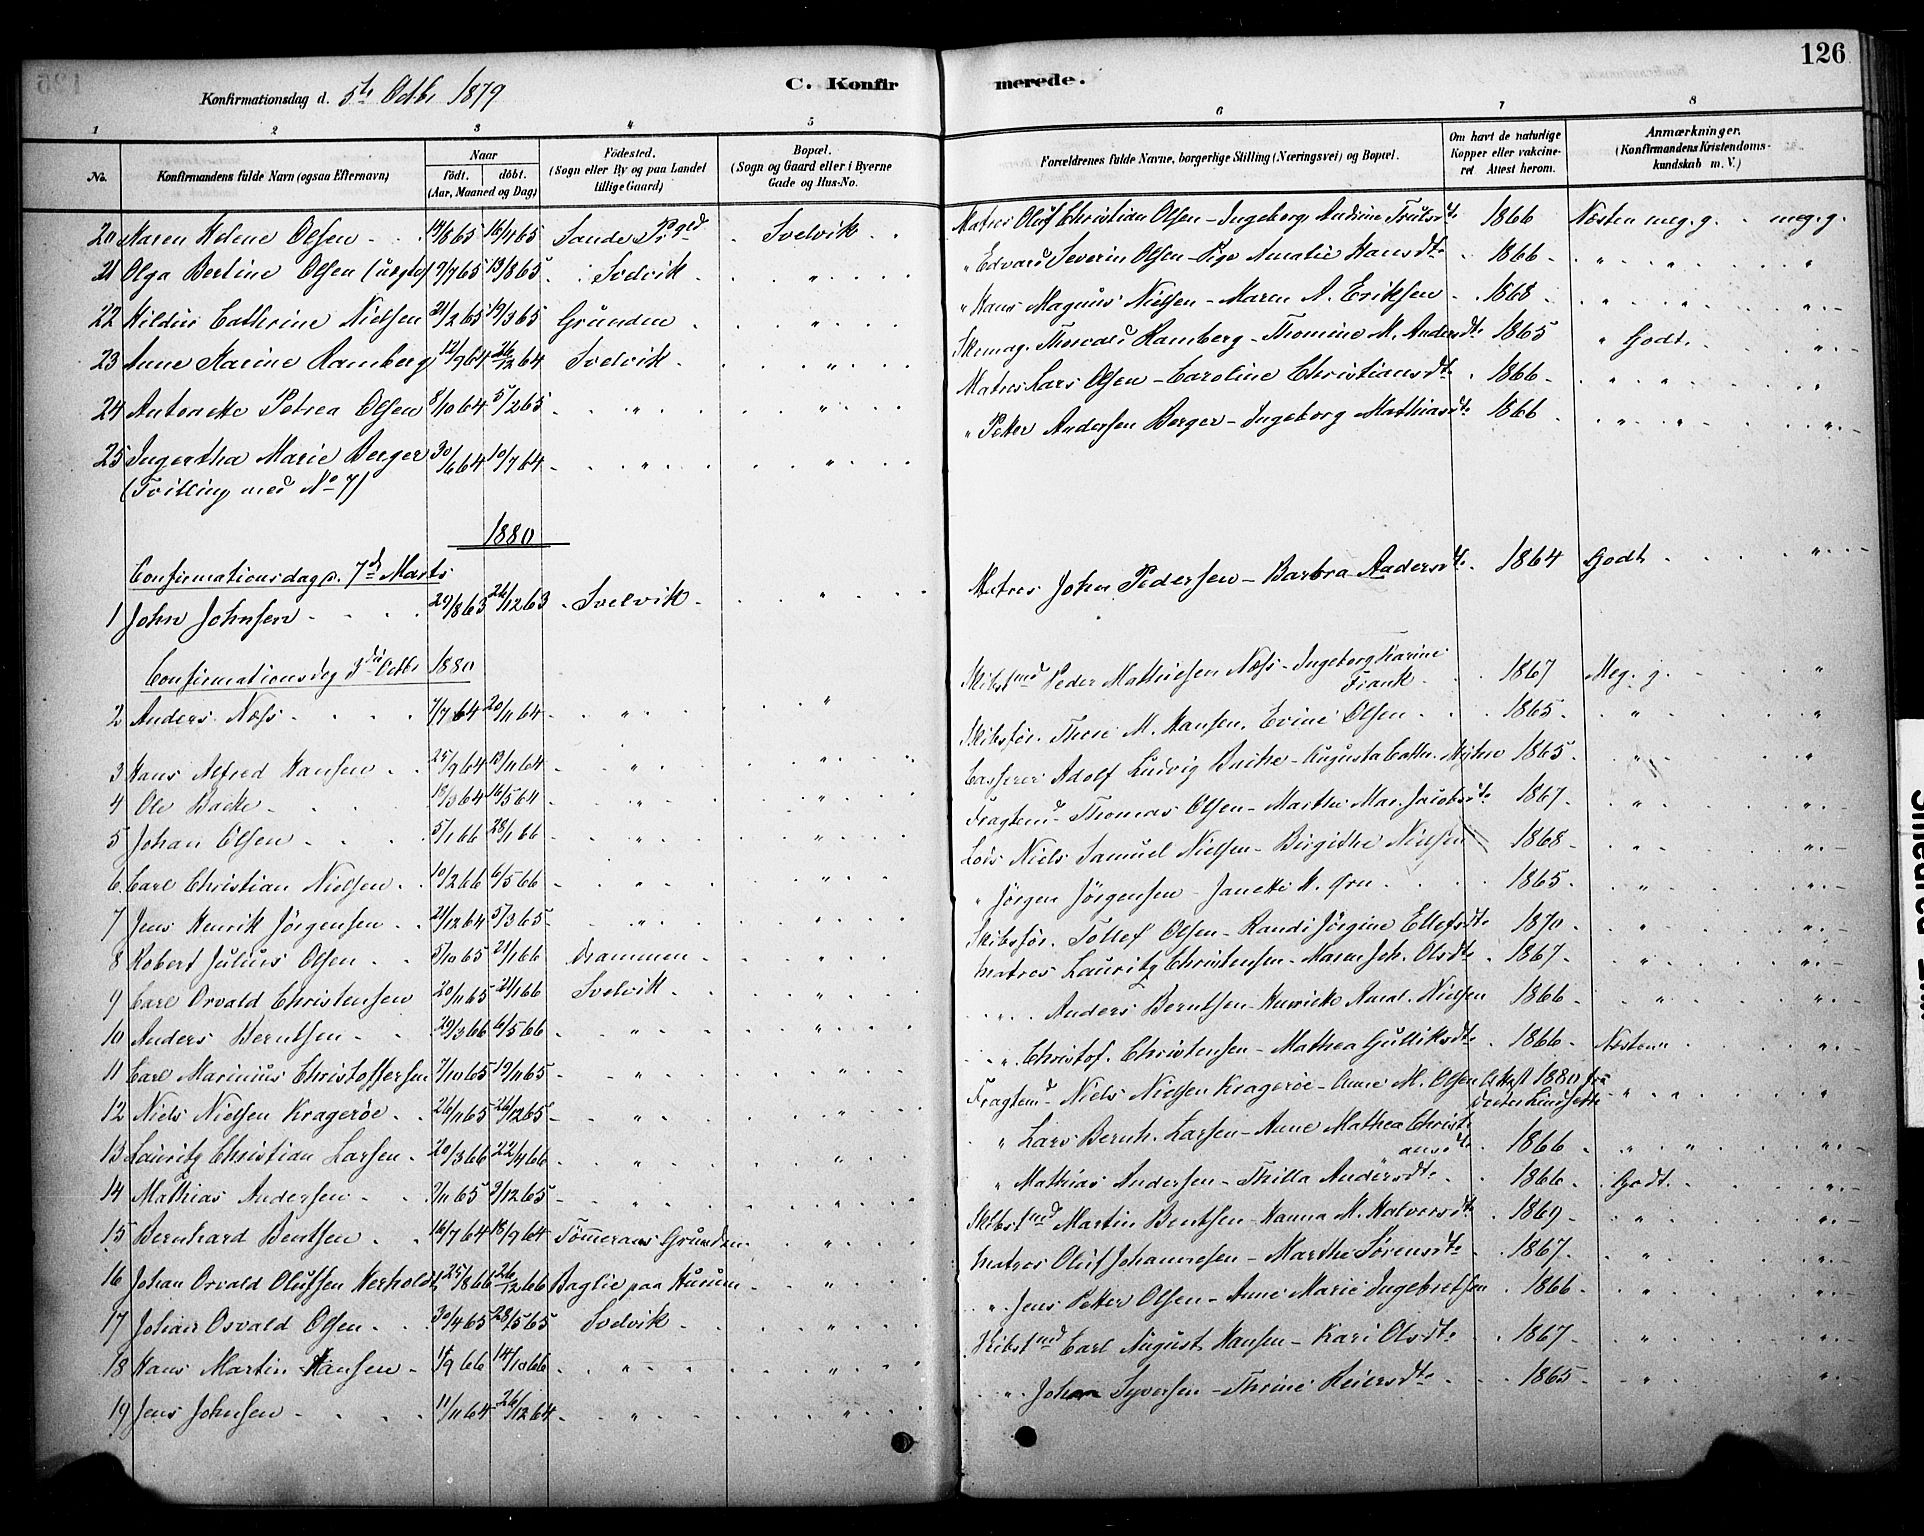 126
Konfirmationsdag d. 5te Octbr 1879
C. Konfirmerede.
1 2 3 4 5 6 7 8
No. Konfirmandens fulde Navn (ogsaa Efternavn) Naar födt. döbt. (Aar, Maaned og Dag) Födested. (Sogn eller By og paa Landet tillige Gaard) Bopæl. (Sogn og Gaard eller i Byerne Gade og Hus-No. Forældrenes fulde Navne, borgerlige Stilling (Næringsvei) og Bopæl. Om havt de naturlige Kopper eller vakcineret Attest herom. Anmærkninger. (Konfirmandens Kristendomskundskab m. V.)
20 Maren Helene Olsen 14/8 65 16/4 65 Sande Pgld Svelvik Matros Oluf Christian Olsen - Ingeborg Andrine Trulsdt 1866 Næsten meg. g. meg. g.
21 Olga Bertine Olsen (uegte) 9/7 65 13/8 65 Svelvik " " Edvard Severin Olsen - Pige Amalie Hansdt 1866 " " "
22 Hildur Cathrine Nielsen 21/2 65 19/3 65 Grunden " " Hans Magnus Nielsen - Maren A. Eriksen 1868 " " "
23 Anne Karine Ramberg 12/9 64 26/12 64 Svelvik " Skomag. Thorvald Ramberg - Thomine M. Andersdt 1865 " Godt. "
24 Antonette Petrea Olsen 8/10 64 5/2 65 " " Matros Lars Olsen - Caroline Christiansdt 1866 " " "
25 Ingertha Marie Berger 30/6 64 10/7 64 " " " Petter Andersen Berger - Ingeborg Mathiasdt 1866 " " "
(Tvilling med No 7)
1880
Confirmationsdag d. 7d Marts
1 John Johnsen 29/8 63 26/12 63 Svelvik " Matros John Pedersen - Barbra Andersdt 1864 Godt "
Confirmationsdag 3die Octbr 1880
2 Anders Næss 7/7 64 20/11 64 " " Skibstmd Peder Mathiesen Næss - Ingeborg Karine Frank 1867 Meg. g. "
3 Hans Alfred Hansen 25/9 64 13/11 64 " " Skibsför. Thore M. Hansen, Evine Olsen 1865 " "
4 Ole Backe 18/3 64 16/5 64 " " Casserer Adolf Ludvig Backe - Augusta Cathr. Myhre 1865 " "
5 Johan Olsen 5/1 66 28/1 66 " " Fragtmd Thomas Olsen - Marthe Mar. Jacobsdt 1867 " "
6 Carl Christian Nielsen 10/2 66 6/5 66 " " Lods Niels Samuel Nielsen - Birgithe Nielsen 1868 " "
7 Jens Henrik Jörgensen 21/12 64 5/3 65 " " " Jörgen Jörgensen - Janette H. Örn 1865 " "
8 Robert Julius Olsen 5/10 65 21/1 66 Drammen " Skibsför. Tollef Olsen - Randi Jörgine Ellefsdt 1870 " "
9 Carl Orvald Christensen 20/11 65 21/1 66 Svelvik " Matros Lauritz Christensen - Maren Joh. Olsdt 1867 " "
10 Anders Berntsen 29/3 66 6/5 66 " " " Anders Berntsen - Henricke Amal. Nielsen 1866 " "
11 Carl Marinius Christoffersen 7/10 65 19/11 65 " " " Christof. Christensen - Mathea Gulliksdt 1866 Næsten "
12 Niels Nielsen Kragerøe 26/11 65 26/12 65 " " Fragtmd Niels Nielsen Kragerøe - Anne M. Olsen Attest 1880 fra " " "
13 Lauritz Christian Larsen 20/3 66 22/4 66 " " " Lars Bernh. Larsen - Anne Mathea Christiansdt 1866 " " "
14 Mathias Andersen 2/11 65 3/12 65 " " " Mathias Andersen - Thilla Andersdt 1866 Godt. "
15 Bernhard Bentsen 16/7 64 18/9 64 Tömeraas Grunden " Skibstmd Martin Bentsen - Hanna M. Halvorsdt 1869 " "
16 Johan Orvald Olufsen Herholdt 25/8 66 26/12 66 Baglie paa Hurum " Matros Oluf Johannesen - Marthe Sörensdt 1867 " "
17 Johan Osvald Olsen 30/4 65 28/5 65 Svelvik " " Jens Petter Olsen - Anne Marie Ingebretsen 1866 " "
18 Hans Martin Hansen 11/9 66 14/10 66 " " Skibstmd Carl August Hansen - Kari Olsdt 1867 " "
19 Jens Johnsen 11/11 64 26/12 64 " " " Johan Syversen - Thrine Reiersdt 1865 " "